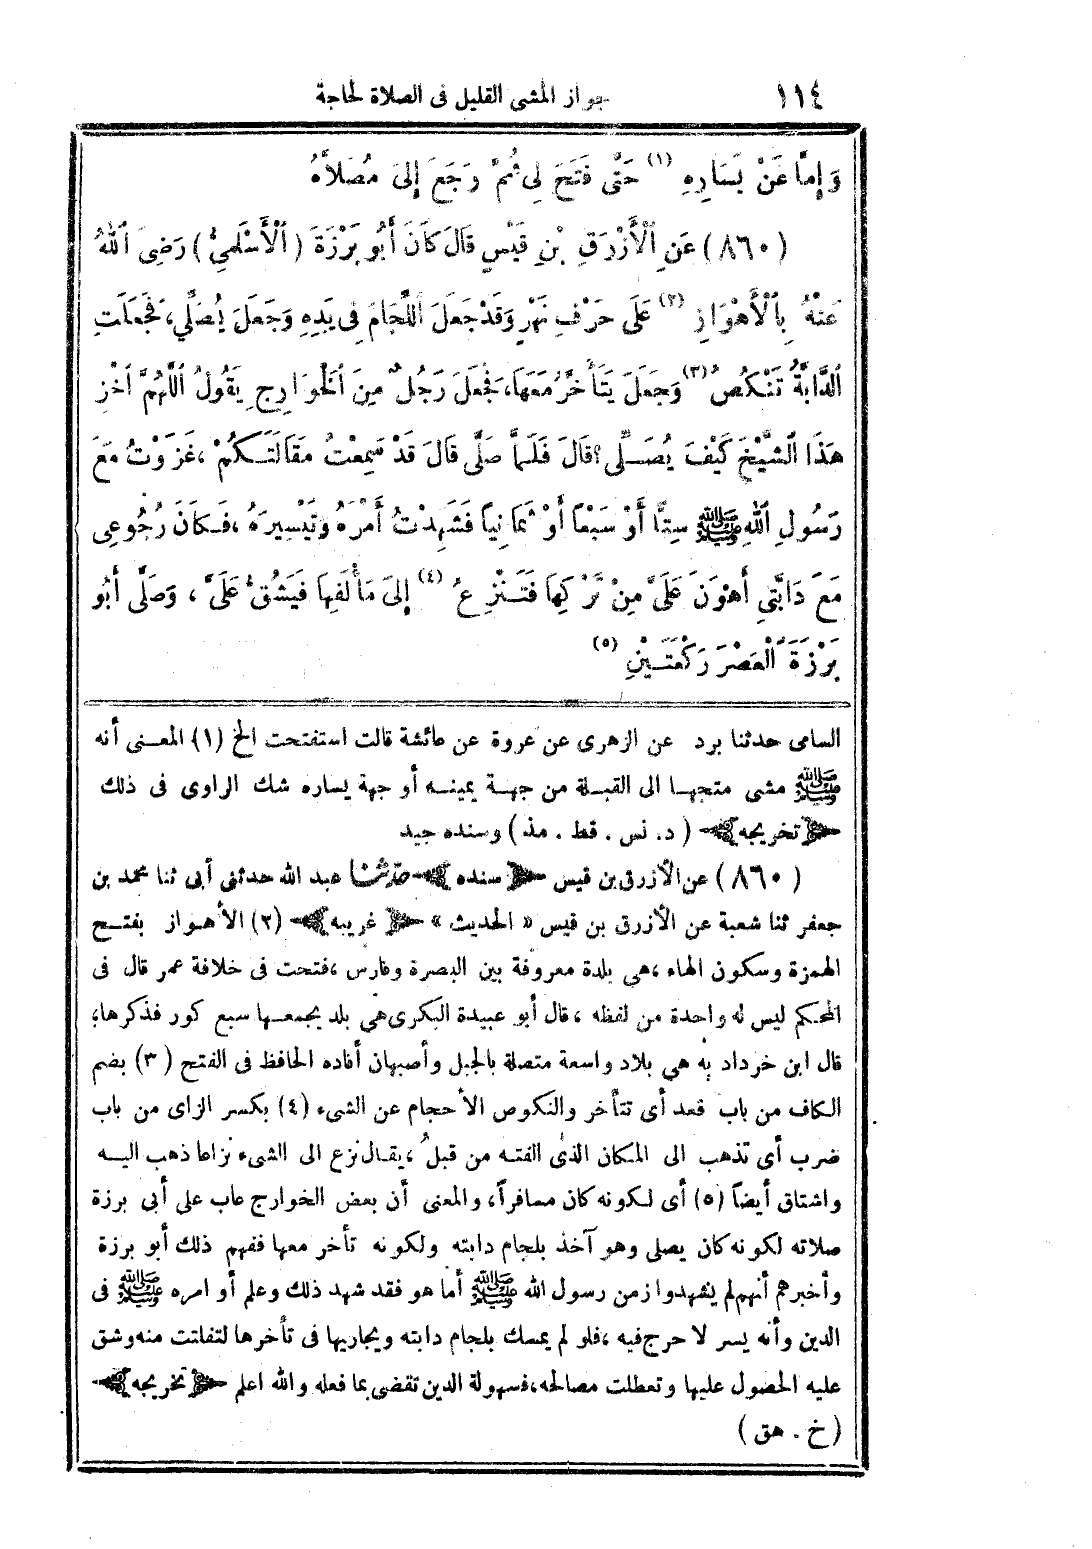 ١١٤ جواز المشى القليل فى الصلاة لحاجة
وَإِمَّا عَنْ يَسَارِهِ (١) حَتَّى فَتَحَ لِى ثُمَّ رَجَعَ إِلَى مُصَلَّاهُ
(٨٦٠) عَنِ الْأَزْرَقِ بْنِ قَيْسٍ قَالَ كَانَ أَبُو بَرْزَةَ (الْأَسْلَمِىُّ) رَضِىَ اللهُ
عَنْهُ بِالْأَهْوَازِ (٢) عَلَى حَرْفِ نَهْرٍ وَقَدْ جَعَلَ اللِّجَامَ فِى يَدِهِ وَجَعَلَ يُصَلِّي، فَجَعَلَتِ
الدَّابَّةُ تَنْكُصُ (٣) وَجَعَلَ يَتَأَخَّرُ مَعَهَا، فَجَعَلَ رَجُلٌ مِنَ الْخَوَارِجِ يَقُولُ اللَّهُمَّ اخْزِ
هَذَا الشَّيْخَ كَيْفَ يُصَلِّى؟ قَالَ فَلَمَّا صَلَّى قَالَ قَدْ سَمِعْتُ مَقَالَتَكُمْ، غَزَوْتُ مَعَ
رَسُولِ اللهِ ﷺ سِتًّا أَوْ سَبْعًا أَوْ ثَمَانِيًا فَشَهِدْتُ أَمْرَهُ وَتَيْسِيرَهُ، فَكَانَ رُجُوعِى
مَعَ دَابَّتِي أَهْوَنَ عَلَىَّ مِنْ تَرْكِهَا فَتَنْزِعُ (٤) إِلَى مَأْلَفِهَا فَيَشُقُّ عَلَىَّ، وَصَلَّى أَبُو
بَرْزَةَ الْعَصْرَ رَكْعَتَيْنِ (٥)
السامى حدثنا برد عن الزهرى عن عروة عن عائشة قالت استفتحت الخ (١) المعنى أنه
ﷺ مشى متجها الى القبلة من جهة يمينه أو جهة يساره شك الراوى فى ذلك
﴿تخريجه﴾ (د. نس. قط. مذ) وسنده جيد
(٨٦٠) عن الأزرق بن قيس ﴿سنده﴾ حدثنا عبد الله حدثنى أبى ثنا محمد بن
جعفر ثنا شعبة عن الأزرق بن قيس « الحديث » ﴿غريبه﴾ (٢) الأهواز بفتح
الهمزة وسكون الهاء، هي بلدة معروفة بين البصرة وفارس، فتحت فى خلافة عمر قال فى
المحكم ليس له واحدة من لفظه، قال أبو عبيدة البكرى هي بلد يجمعها سبع كور فذكرها،
قال ابن خرداد به هي بلاد واسعة متصلة بالجبل وأصبهان أفاده الحافظ فى الفتح (٣) بضم
الكاف من باب قعد أى تتأخر والنكوص الأحجام عن الشىء (٤) بكسر الزاى من باب
ضرب أى تذهب الى المكان الذى الفته من قبل، يقال نزع الى الشىء نزاعا ذهب اليه
واشتاق أيضاً (٥) أى لكونه كان مسافراً، والمعنى أن بعض الخوارج عاب على أبى برزة
صلاته لكونه كان يصلى وهو آخذ بلجام دابته ولكونه تأخر معها ففهم ذلك أبو برزة
وأخبرهم أنهم لم يشهدوا زمن رسول الله ﷺ أما هو فقد شهد ذلك وعلم أوامره ﷺ فى
الدين وأنه يسر لا حرج فيه، فلو لم يمسك بلجام دابته ويجاريها فى تأخرها لتفلتت منه وشق
عليه الحصول عليها وتعطلت مصالحه، فسهولة الدين تقضى بما فعله والله اعلم ﴿تخريجه﴾
(خ. هق)